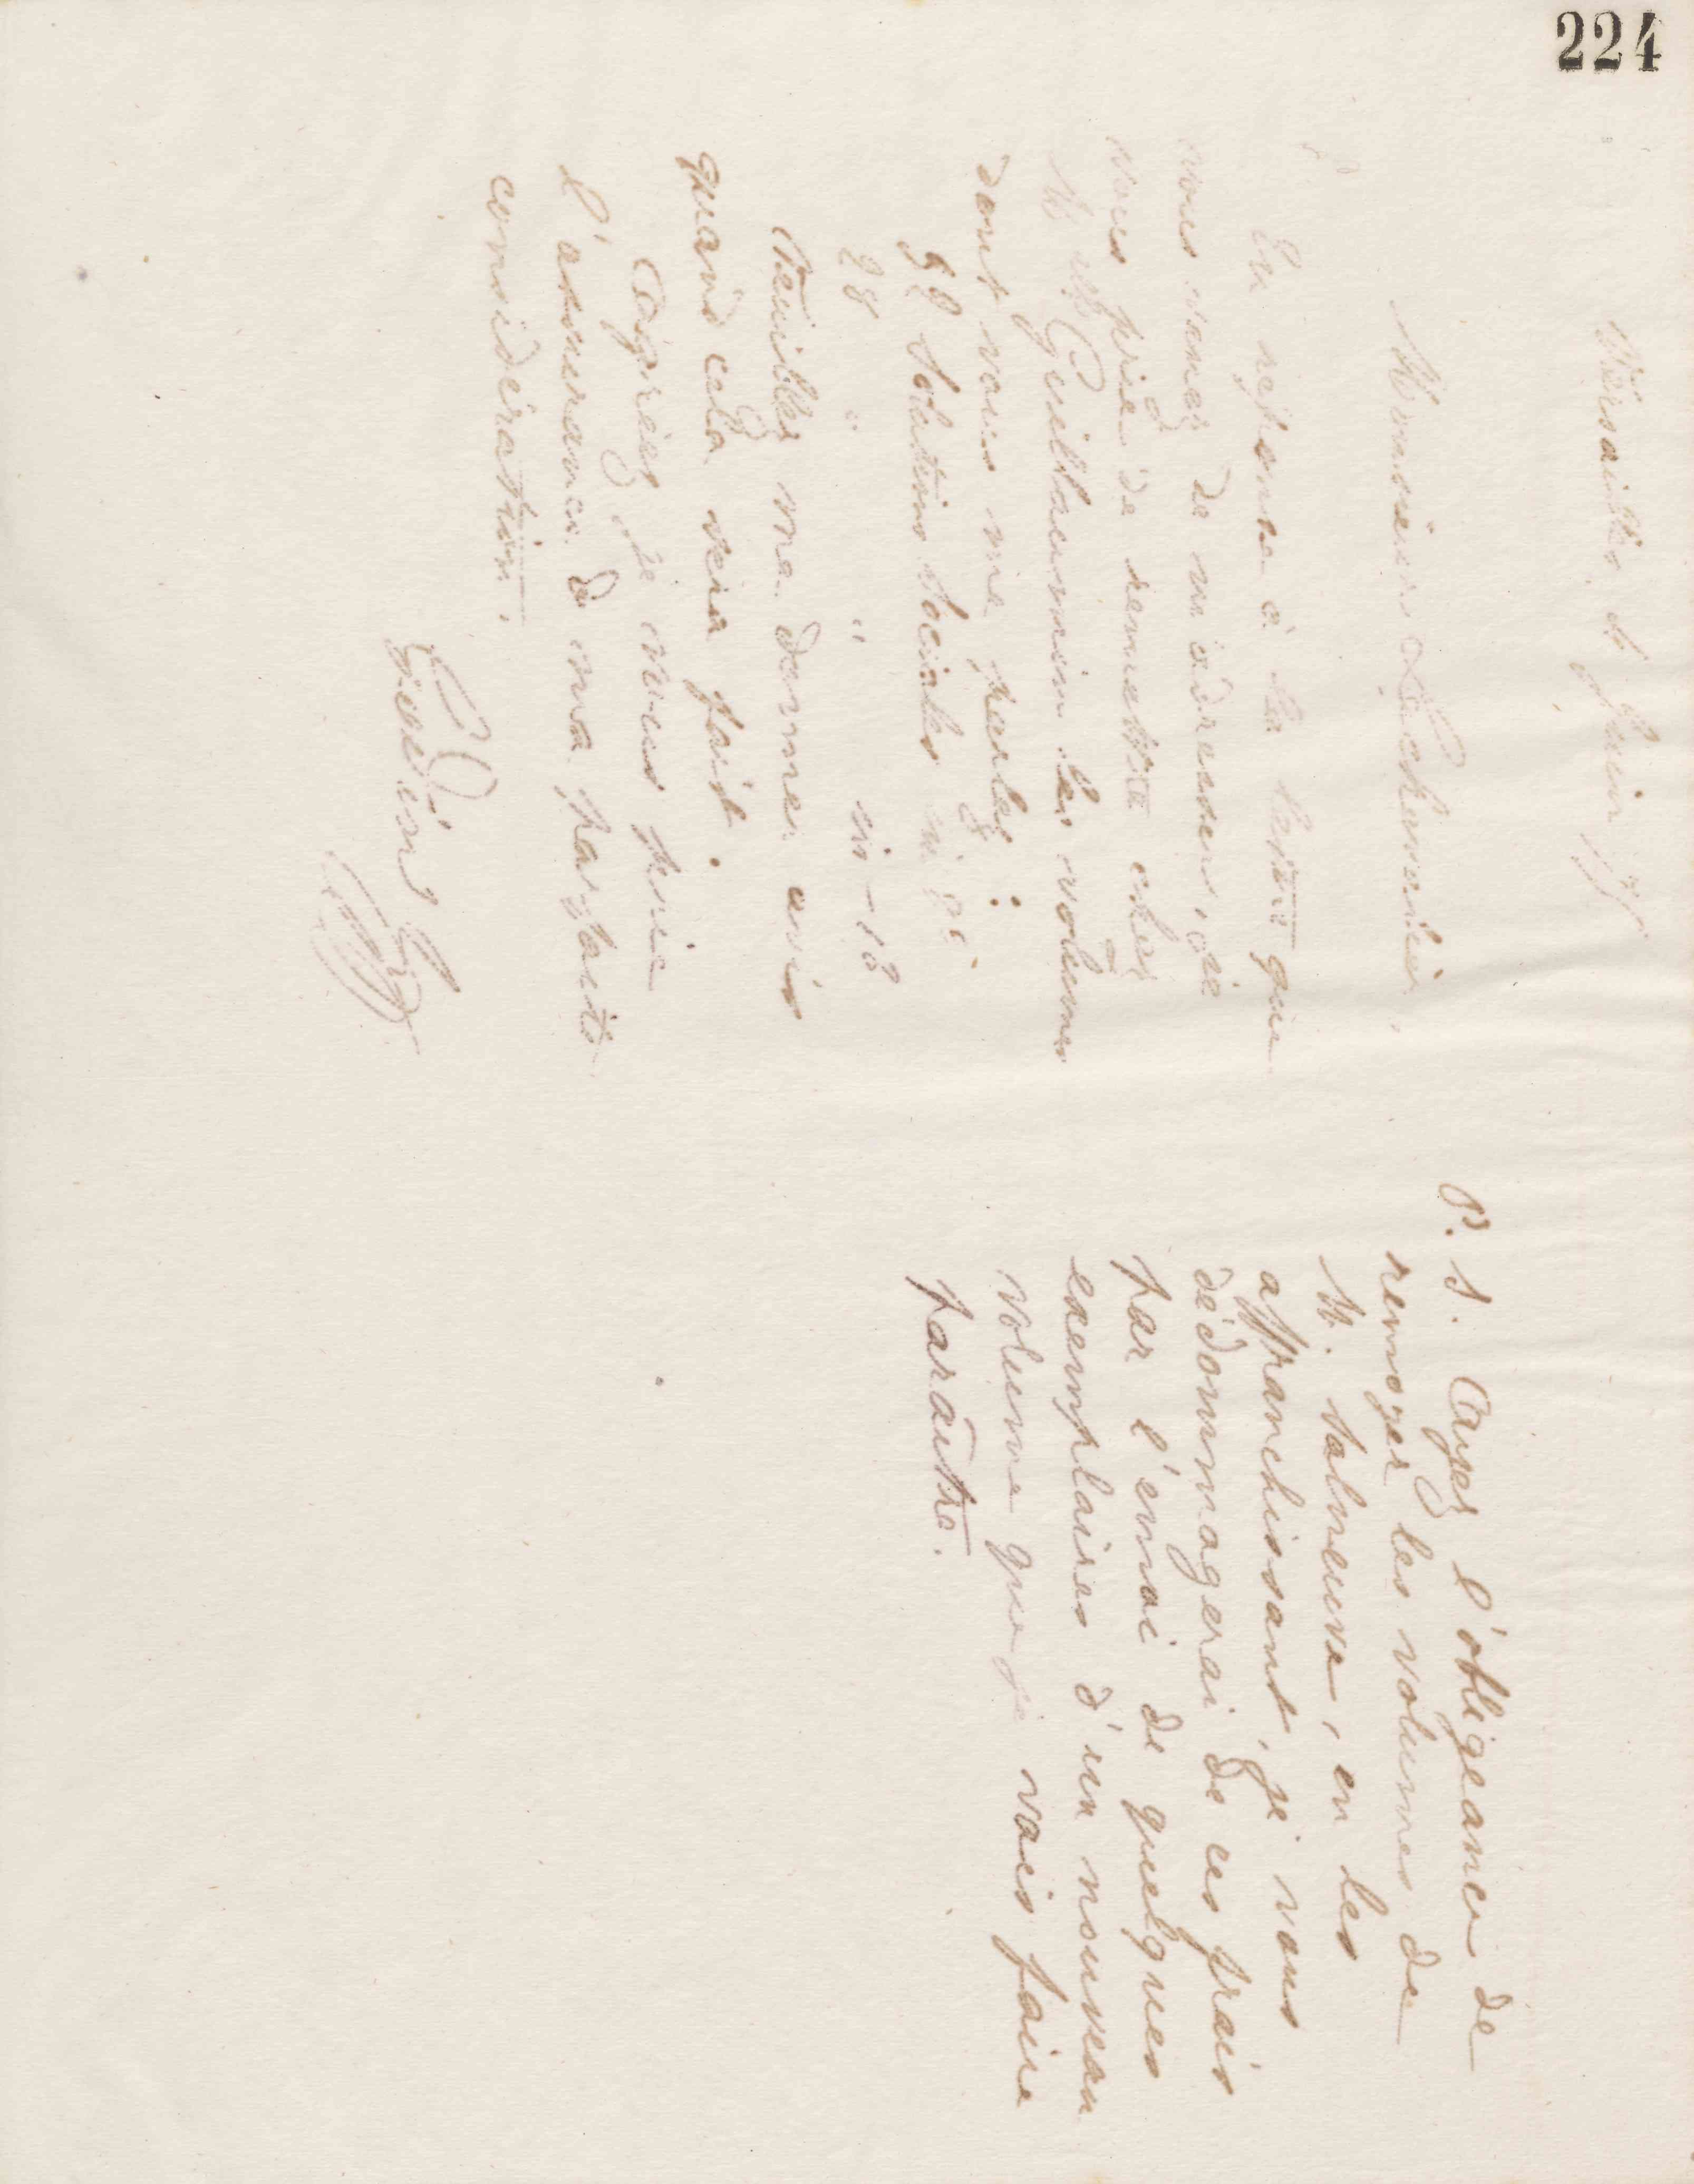 224
Versailles, 
Monsieur Lechevalier,
En reponse à la lettre que
vous venez de m'adresser, je
vous prie de remettre chez
M Guillaumin les volumes
dont vous me parlez :
52 Solutions Sociales in 8º
28 " " in-18
Veuillez me donner avis
quand cela sera fait.
Agréez je vous prie
l'assurance de ma parfaite
considération.
Godin
P. S. Ayez l'obligeance de
renvoyer les volumes de
M. Salneuve, en les
affranchissant, je vous
dédommagerai de ces frais
par l'envoi de quelques
exemplaires d'un nouveau
volume que je vais faire
paraître.